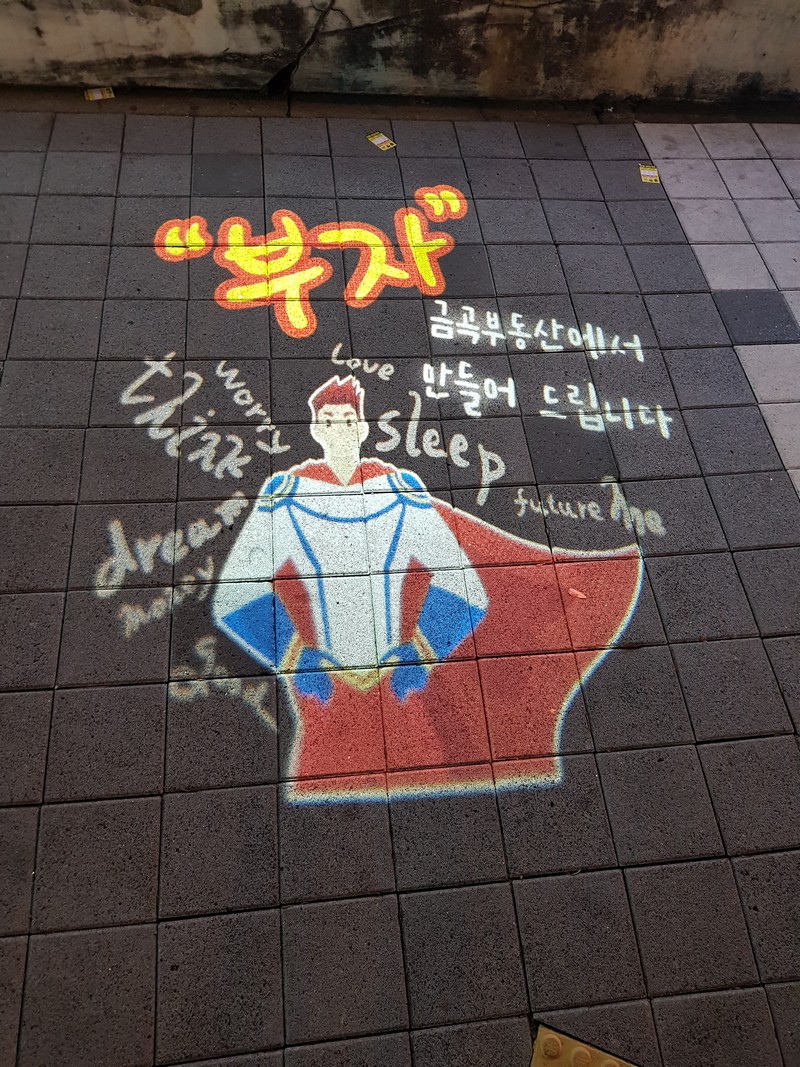 “부자”
금곡부동산에서
만들어 드립니다
love
worry
think
sleep
dream
future
money